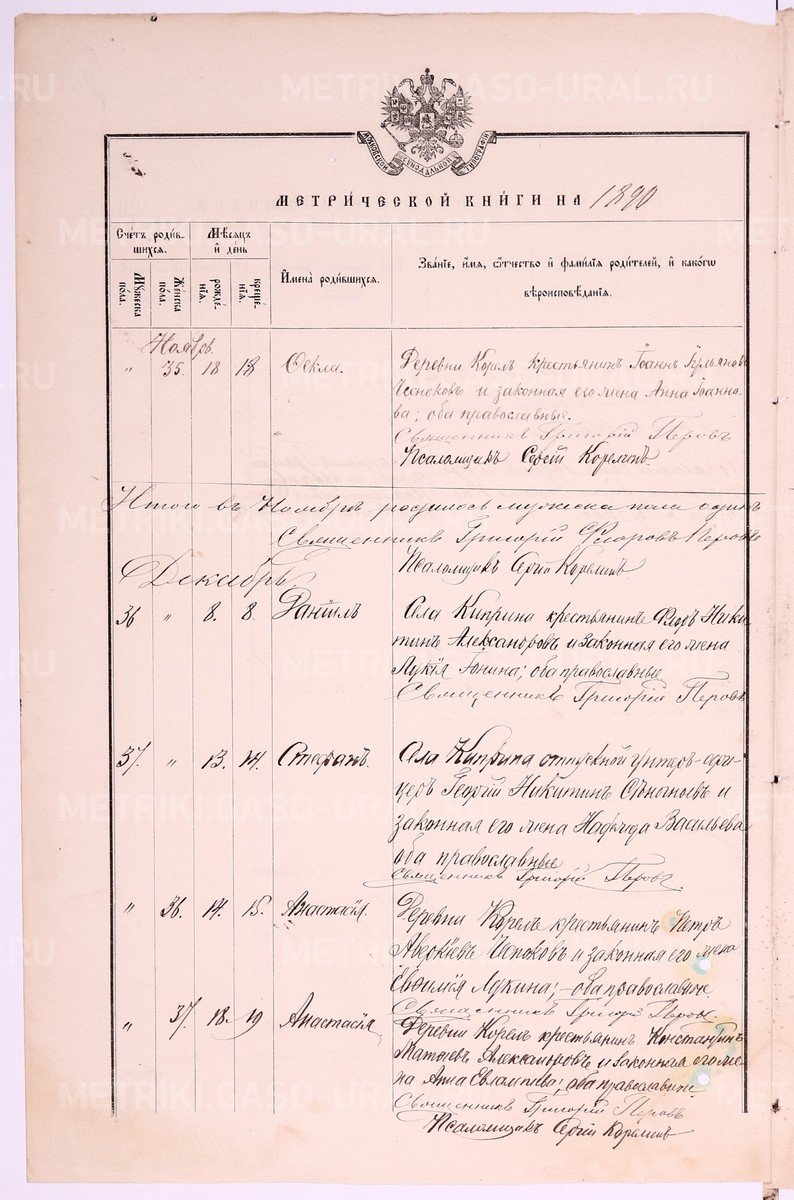 METRIKI.UASO-URAL.RU
МОСКОВСКОЙ СѴНОДАЛЬНОЙ ТИПОГРАФІИ
МЕТРИ́ЧЕСКОЙ КНИ́ГИ НА 1890
Сче́тъ роди́вшихся.
Мѣ́сяцъ и де́нь
Имена̀ роди́вшихся.
Зва́нїе, и́мя, ѻ҆́тчество и фами́лїя роди́телей, и како́гѡ вѣроисповѣ́данїя.
Мꙋ́жеска по́ла.
Же́нска по́ла.
рожде́нїя.
креще́нїя.
Ноябрь
" 35. 18 18 Ѳекла.
Деревни Корелъ крестьянинъ Іоаннъ
Чесноковъ и законная его жена Анна Іоанно-
ва; оба православные.
Священникъ Григорій Перовъ
Псаломщикъ Сергій Корелинъ.
Итого въ Ноябрѣ родилось мужеска пола одинъ
Священникъ Григорій Флоровъ Перовъ
Псаломщикъ Сергій Корелинъ.
Декабрь
36 " 8. 8. Даніилъ
Села Киприна крестьянинъ Флоръ Ники-
тинъ Александровъ и законная его жена
Лукія Іонина; оба православные
Священникъ Григорій Перовъ
37. " 13. 14. Стефанъ.
Села Киприна отпускной унтеръ-офи-
церъ Георгій Никитинъ и
законная его жена Васильева
оба православные
Священникъ Григорій Перовъ.
" 36. 14. 15. Анастасія.
Деревни Корелъ крестьянинъ Петръ
Аверкіевъ и законная его жена
Евфимія Лукина; оба православные.
Священникъ Григорій Перовъ.
" 37. 18. 19 Анастасія
Деревни Корелъ крестьянинъ Константинъ
Матвеевъ Александровъ и законная его же-
на Анна Евлампіева; оба православные.
Священникъ Григорій Перовъ
Псаломщикъ Сергій Корелинъ